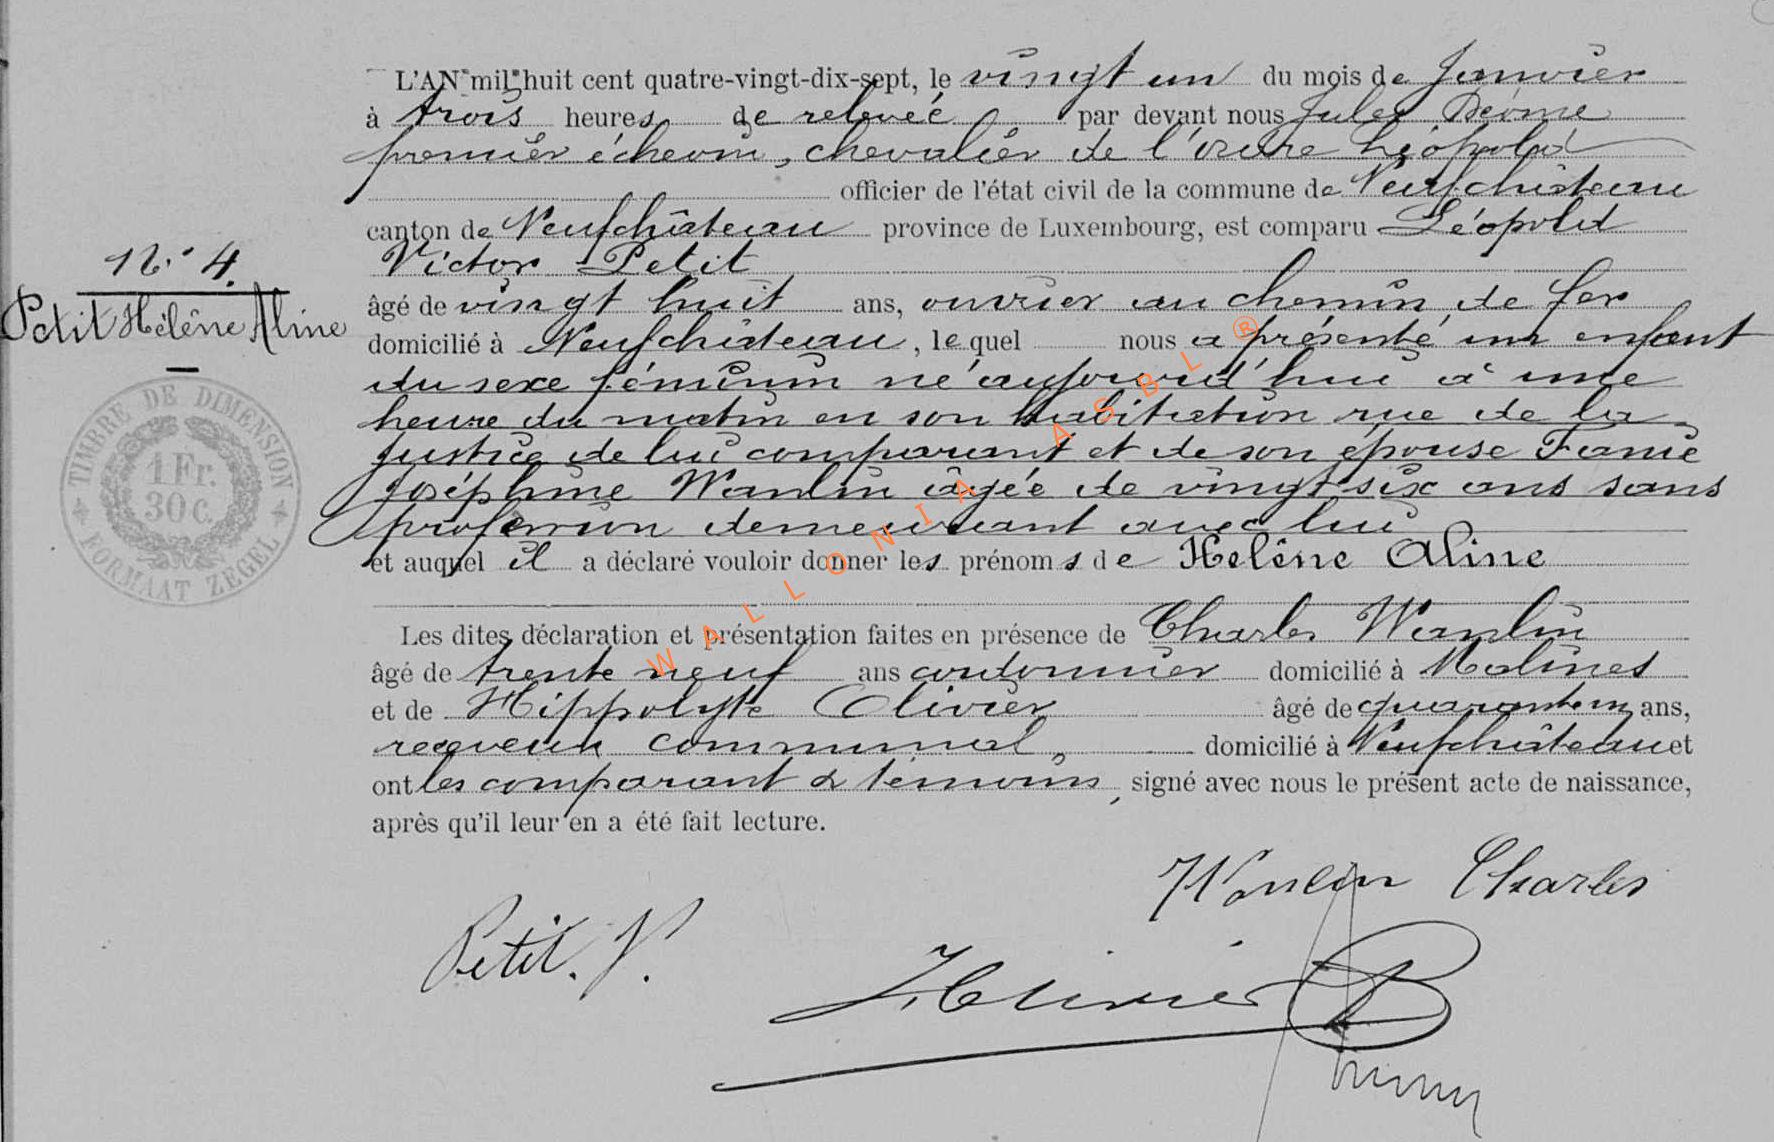 L'AN mil huit cent quatre-vingt-dix-sept, le vingt un du mois de Janvier
à trois heures de relevée par devant nous Jules
premier échevin, chevalier de l'ordre Léopold
officier de l'état civil de la commune de Neufchâteau
canton de Neufchâteau province de Luxembourg, est comparu Léopold
Victor Petit
N° 4.
Petit Hélène Aline
âgé de vingt huit ans, ouvrier au chemin de fer
domicilié à Neufchâteau, lequel nous a présenté un enfant
du sexe féminin né aujourd'hui à une
heure du matin en son habitation rue de la
justice de lui comparant et de son épouse
Joséphine Wanlin âgée de vingt-six ans sans
profession demeurant avec lui
et auquel il a déclaré vouloir donner les prénoms de Helêne Aline
TIMBRE DE DIMENSION
1 Fr.
30 c.
FORMAAT ZEGEL
Les dites déclaration et présentation faites en présence de Charles Wanlin
âgé de trente neuf ans cordonnier domicilié à Malines
et de Hippolyte Olivier âgé de quarante un ans,
receveur communal, domicilié à Neufchâteau et
ont les comparant & témoins, signé avec nous le présent acte de naissance,
après qu'il leur en a été fait lecture.
Wanlin Charles
Petit. V.
H Olivier
WALLONIA ASBL ®